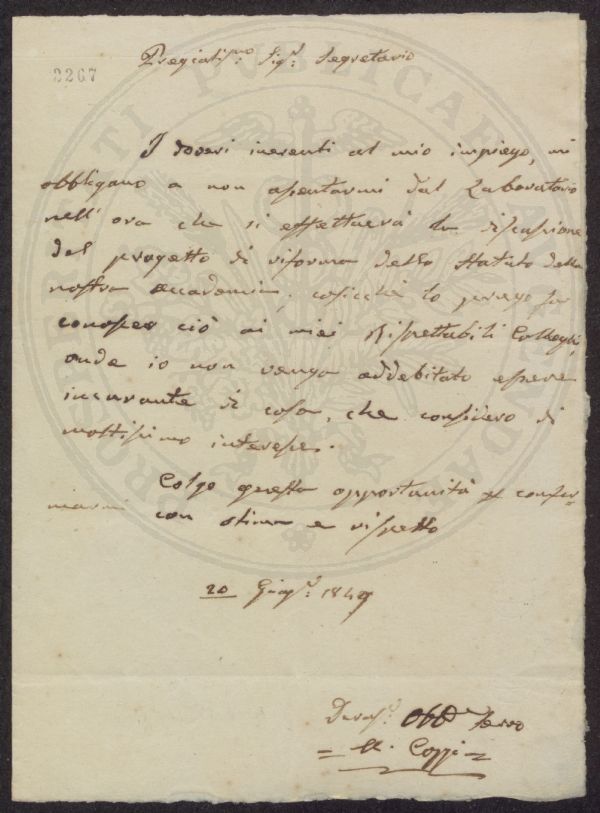 3267
Pregiatis.mo Sig.r Segretario
I doveri inerenti al mio impiego, mi
obbligano a non assentarmi dal Laboratorio
nell' ora che si effettuerà la discussione
del progetto di riforma dello Statuto della
nostra accademia; cosicchè lo prego far
conoscer ciò ai miei Rispettabili Colleghi,
onde io non venga addebitato essere
incurante di cosa, che considero di
moltissimo interesse.
Colgo questa opportunità p confer-
marmi con stima e rispetto
20 Giug.o: 1849
Devos.o: Obb.o Servo
Coppi
PUBLICAE